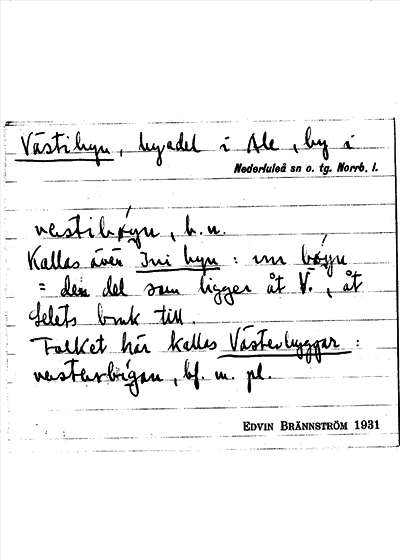 Västibyn, byadel i Ale, by i
Nederluleå sn o. tg. Norrb. l.
västibýn, b. n.
Kallas även Ini byn : ini býn
= den del som ligger åt V., åt
Selets bruk till.
Folket här kallas Västerbyggar :
västerbígan, bf. m. pl.
EDVIN BRÄNNSTRÖM 1931